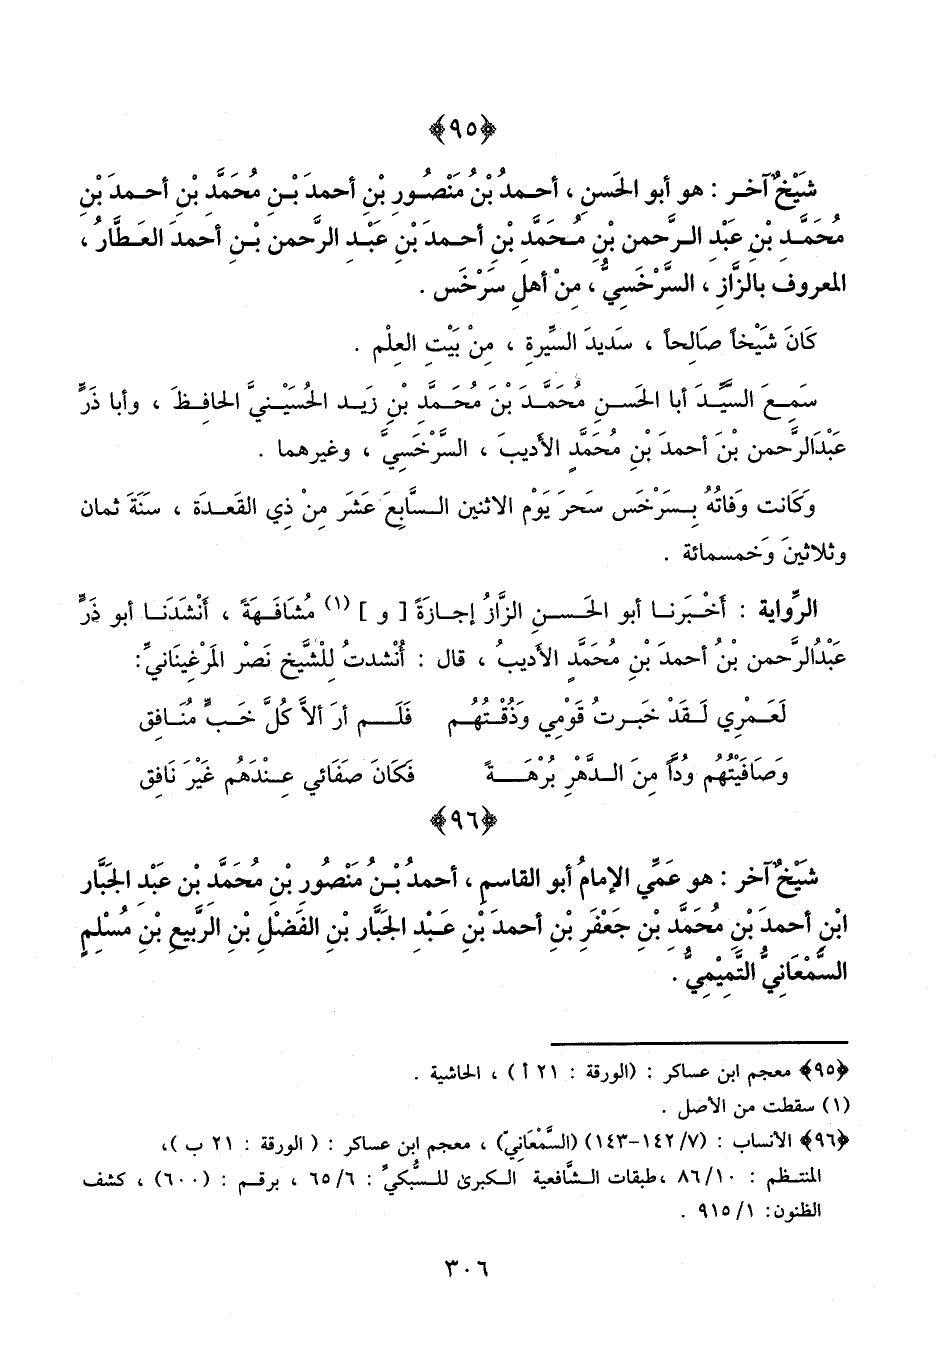 ﴿٩٥﴾
شَيْخٌ آخر : هو أبو الحَسنِ ، أحمدُ بْنُ مَنْصُورِ بْنِ أحمدَ بْنِ مُحَمَّدِ بْنِ أحمدَ بْنِ
مُحَمَّدِ بْنِ عَبْدِ الرَّحمنِ بْنِ مُحَمَّدِ بْنِ أحمدَ بْنِ عَبْدِ الرَّحمنِ بْنِ أحمدَ العَطَّارُ ،
المعروف بالزَّازِ ، السَّرْخَسِيُّ ، مِنْ أهلِ سَرْخَس .
كَانَ شَيْخاً صَالِحاً ، سَدِيدَ السِّيرةِ ، مِنْ بَيْتِ العِلْمِ .
سَمِعَ السَّيِّدَ أبا الحَسنِ مُحَمَّدَ بْنَ مُحَمَّدِ بْنِ زَيد الحُسَيْنيَّ الحافِظَ ، وأبا ذَرٍّ
عَبْدَالرَّحمنِ بْنَ أحمدَ بْنِ مُحَمَّدٍ الأديبَ ، السَّرْخَسِيَّ ، وغيرهما .
وَكَانت وَفاتُهُ بِسَرْخَس سَحرَ يَوْمِ الاثنين السَّابِعَ عَشَرَ مِنْ ذِي القَعدَة ، سنَةَ ثمان
وثلاثينَ وَخمسمائة .
الرِّواية : أَخْبَرنا أبو الحَسنِ الزَّازُ إجازَةً [ و ] (١) مُشَافَهةً ، أَنْشَدَنَا أبو ذَرٍّ
عَبْدُالرَّحمن بْنُ أحمدَ بْنِ مُحَمَّدٍ الأديبُ ، قال : أُنْشدتُ لِلشَّيخِ نَصْرِ المَرْغِينانيِّ:
لَعَمْرِي لَقَدْ خَبَرتُ قَوْمِي وَذُقْتُهُمِ فَلَمِ أرَ ألاَّ كُلَّ خَبٍّ مُنَافِقِ
وَصَافَيْتُهُمِ وُدًّا مِنَ الدَّهْرِ بُرْهَةً فَكَانَ صَفَائي عِنْدَهُم غَيْرَ نَافِقِ
﴿٩٦﴾
شَيْخٌ آخر : هو عَمِّي الإمامُ أبو القاسم ، أحمدُ بْنُ مَنْصُورِ بْنِ مُحَمَّدِ بْنِ عَبْدِ الجَبَّارِ
ابْنِ أحمدَ بْنِ مُحَمَّدِ بْنِ جَعْفَرِ بْنِ أحمدَ بْنِ عَبْدِ الجَبَّارِ بْنِ الفَضْلِ بْنِ الرَّبيعِ بْنِ مُسْلِمٍ
السَّمْعَانِيُّ التَّمِيْمِيُّ .
﴿٩٥﴾ معجم ابن عساكر : (الورقة : ٢١ أ) ، الحاشية .
(١) سقطت من الأصل .
﴿٩٦﴾ الأنساب : (٧/ ١٤٢-١٤٣) (السَّمْعَانِيّ) ، معجم ابن عساكر : ( الورقة : ٢١ ب )،
المنتظم : ١٠/ ٨٦ ،طبقات الشَّافعية الكبرىٰ للسُّبكيِّ : ٦/ ٦٥ ، برقم : (٦٠٠) ، كشف
الظنون: ١/ ٩١٥ .
٣٠٦